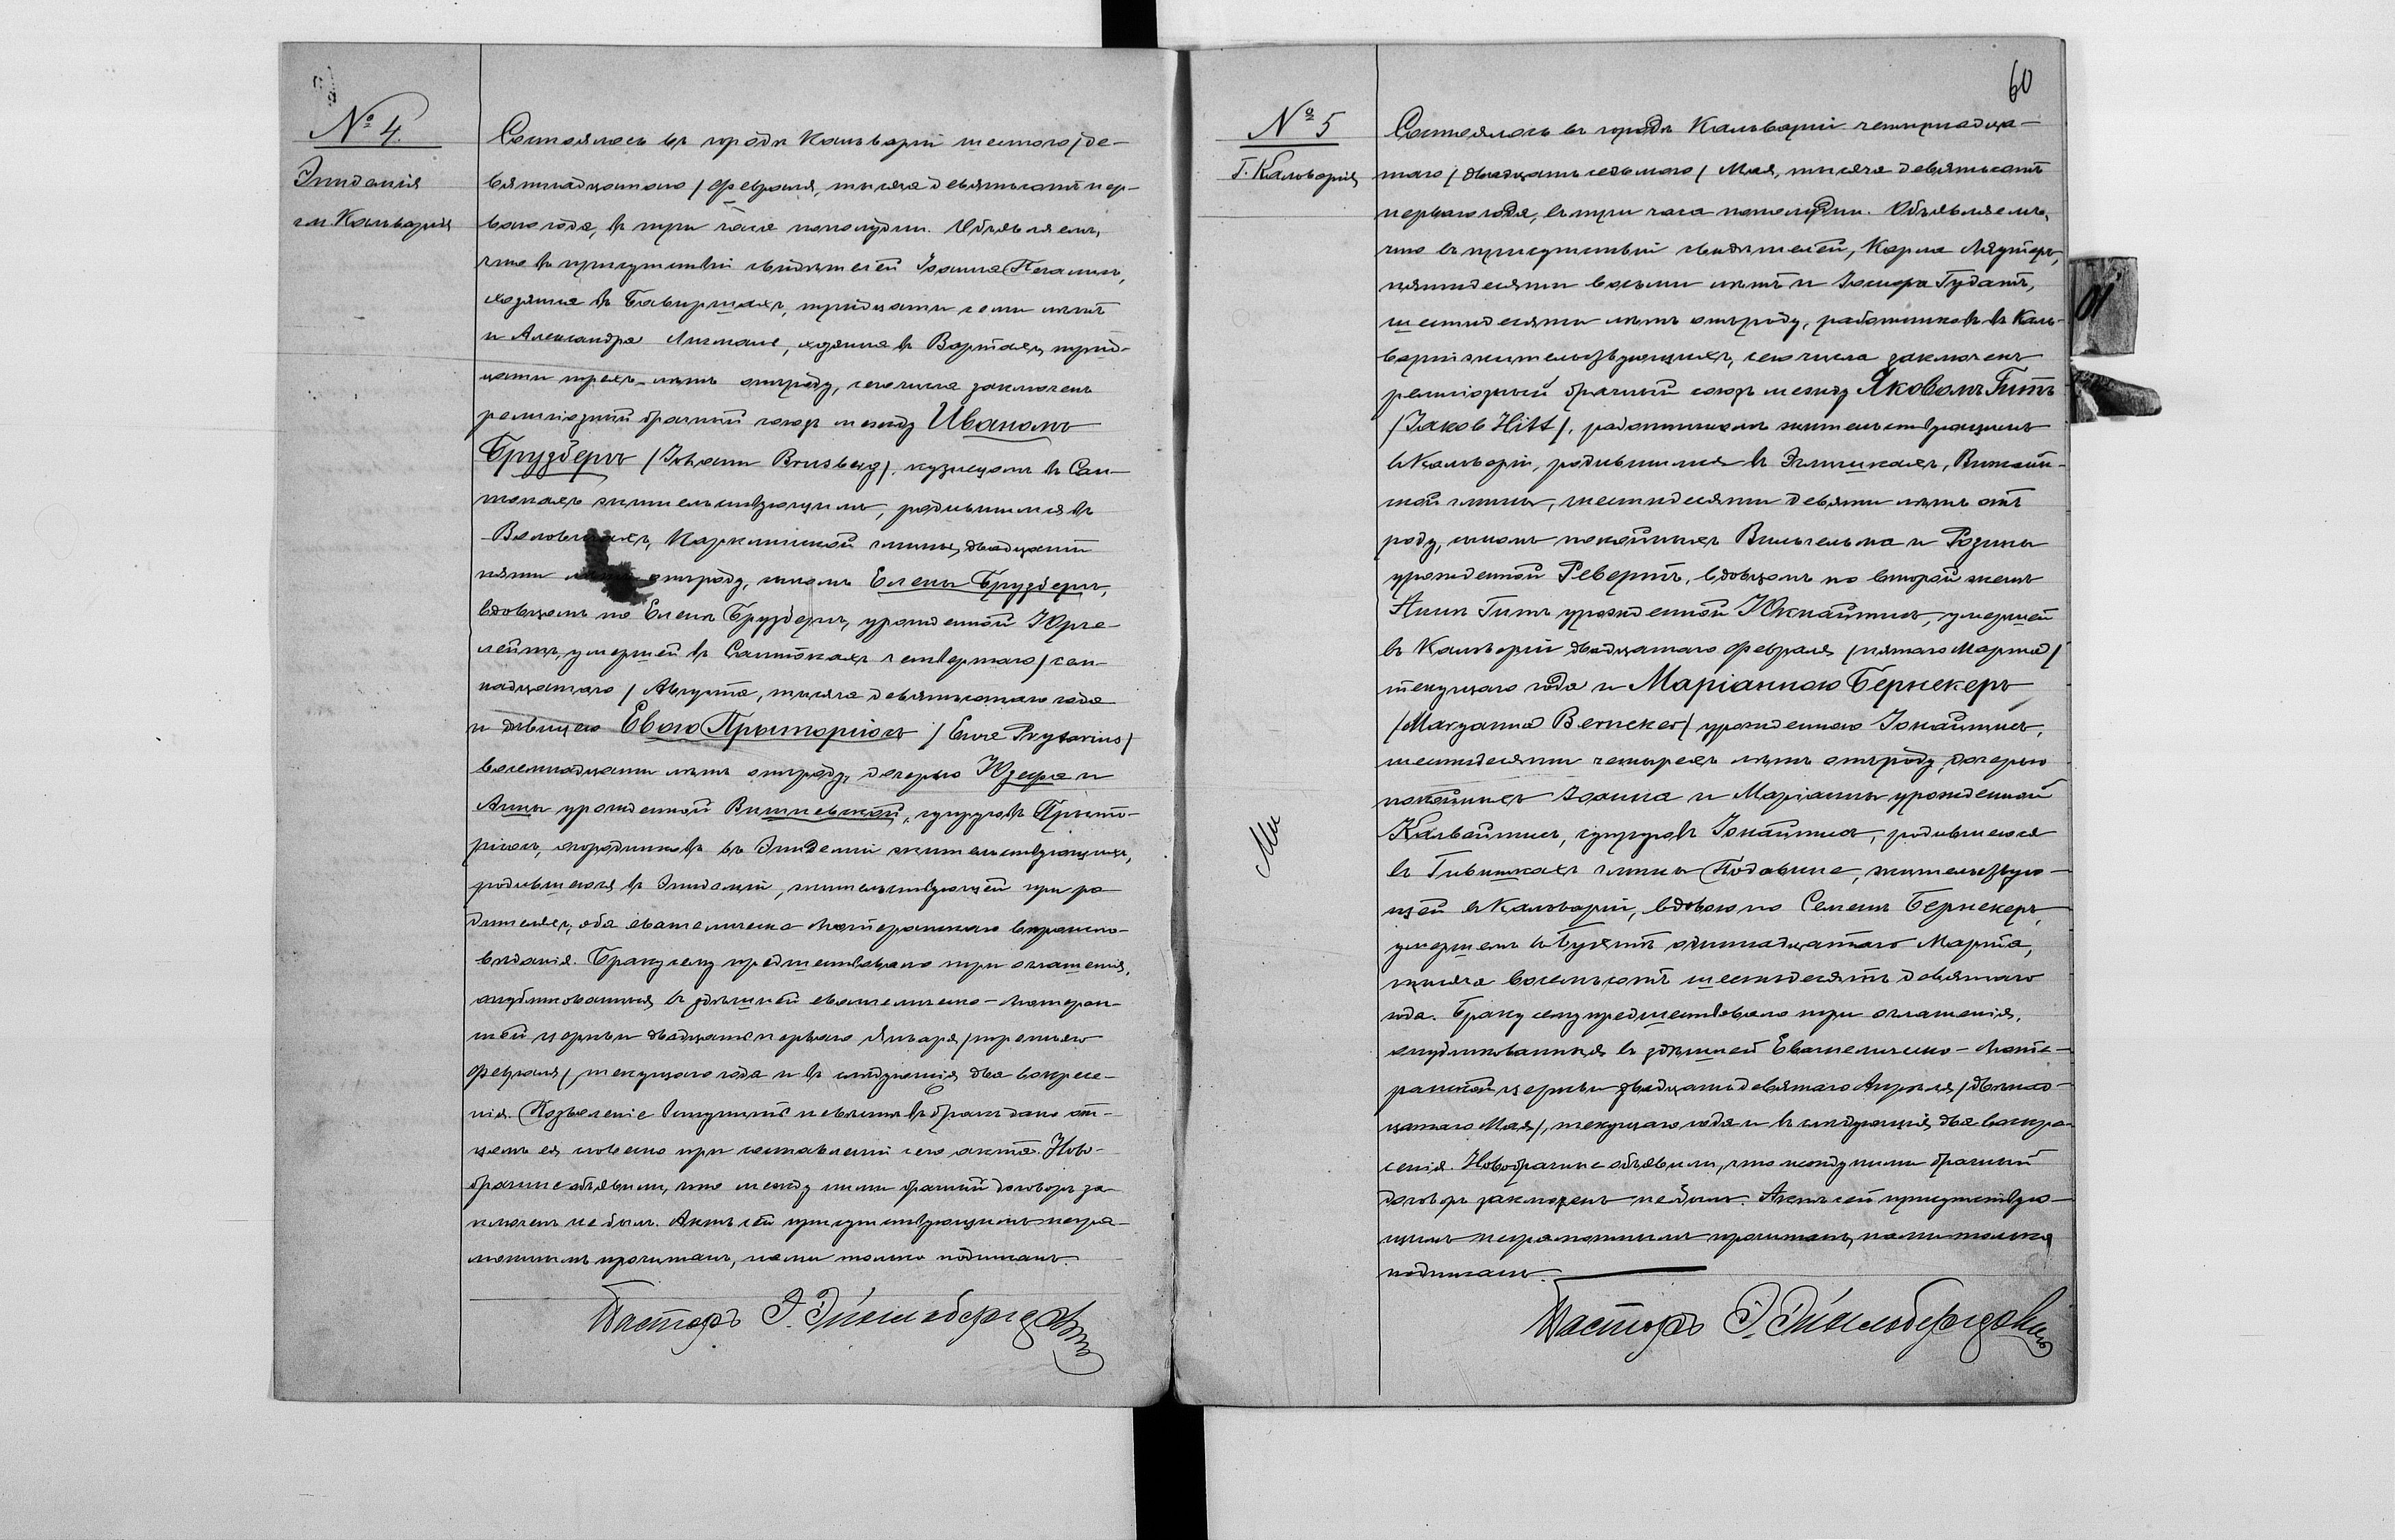 № 4.
Эпидемія
гм. Кальварія
Состоялось въ городѣ Кальваріи шестого /де-
вятнадцатаго/ Февраля, тысяча девятьсотъ пер-
ваго года, въ три часа пополудни. Объявляемъ,
что въ присутствіи свидѣтелей Іоанна
хозяина въ тридцати семи лѣтъ
и Александра хозяина въ трид-
цати трехъ лѣтъ отъ роду, сего числа заключенъ
религіозный брачный союзъ между Иваномъ
Брузберъ /Johann Brusberg/, кузнецомъ въ Сан-
токахъ жительствующимъ, родившимся въ
гмины, двадцати
пяти лѣтъ отъ роду, сыномъ Елены Брузберъ,
вдовцомъ по Еленѣ Брузберъ, урожденной Юрге-
лейтъ, умершей въ Сантокахъ четвертаго /сем-
надцатаго/ Августа, тысяча девятьсотаго года
и дѣвицею Евою Прыторіюсъ /Ewa Prytorius/
восемнадцати лѣтъ отъ роду, дочерью Юзефа и
Анны урожденной Вишневской, супруговъ Прыто-
ріюсъ, огородниковъ въ жительствующихъ,
родившеюся въ жительствующей при ро-
дителяхъ, оба евангелическо-лютеранскаго вѣроиспо-
вѣданія. Браку сему предшествовало три оглашенія,
опубликованныя въ здѣшней евангелическо-лютеран-
ской церкви двадцать перваго Января /третьяго
Февраля/, текущаго года и въ слѣдующія два воскресе-
нія. Позволеніе вступить невѣстѣ въ бракъ дано от-
цемъ ея словесно при составленіи сего акта. Ново-
брачные объявили, что между ними брачный договоръ за-
ключенъ не былъ. Актъ сей присутствующимъ негра-
мотнымъ прочитанъ, нами только подписанъ.
Пасторъ
60
№ 5
Г. Кальварія
Состоялось въ городѣ Кальваріи четырнадца-
таго /двадцать седьмого/ Мая, тысяча девятьсотъ
перваго года, въ три часа пополудни. Объявляемъ,
что въ присутствіи свидѣтелей, Карла
пятидесяти восьми лѣтъ и Іосифа Гудатъ,
шестидесяти лѣтъ отъ роду, работниковъ въ Каль-
варіи жительствующихъ, сего числа заключенъ
религіозный брачный союзъ между Яковомъ Гитъ
/Jakob Hitt/, работникомъ жительствующимъ
въ Кальваріи, родившимся въ
гмины, шестидесяти девяти лѣтъ отъ
роду, сыномъ покойныхъ Вильгельма и Розины
урожденнойРевертъ, вдовцомъ по второй женѣ
Аннѣ Гитъ урожденной умершей
въ Кальваріи двадцатаго Февраля /пятаго Марта/
текущаго года и Маріанною Бернекеръ
/Maryanna Berneker/ урожденною Іонайтисъ,
шестидесяти четырехъ лѣтъ отъ роду, дочерью
покойныхъ Іоанна и Маріанны урожденной
Кальвайтисъ, супруговъ Іонайтисъ, родившеюся
въ гмины жительствую-
щей въ Кальваріи, вдовою по Семенѣ Бернекеръ,
умершемъ въ одиннадцатаго Марта,
тысяча восемьсотъ шестьдесятъ девятаго
года. Браку сему предшествовало три оглашенія,
опубликованныя въ здѣшней Евангелическо-Люте-
ранской церкви двадцать девятаго Апрѣля /двѣнад-
цатаго Мая/, текущаго года и въ слѣдующія два воскре-
сенія. Новобрачные объявили, что между ними брачный
договоръ заключенъ не былъ. Актъ сей присутствую-
щимъ неграмотнымъ прочитанъ, нами только
подписанъ.
Пасторъ